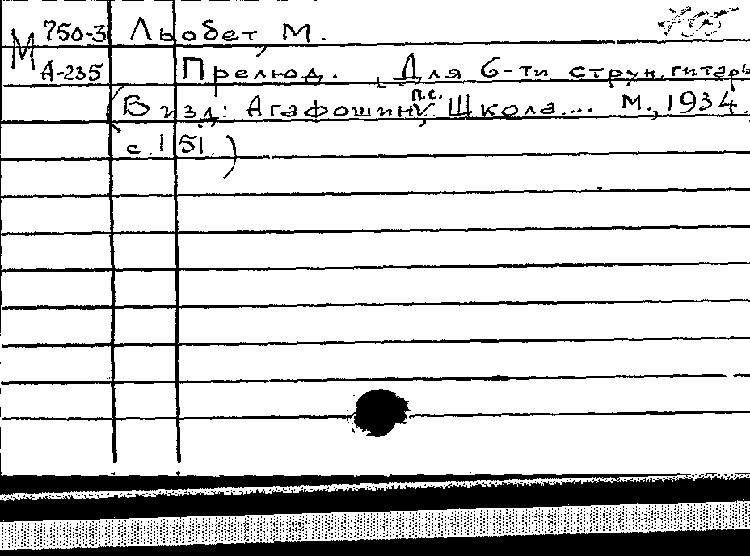 М 750-3 Льобет, М.
А-235 Прелюд. Для 6-ти струн. гитары
(В изд: Агафошин, П.С. Школа... М., 1934,
с. 151)